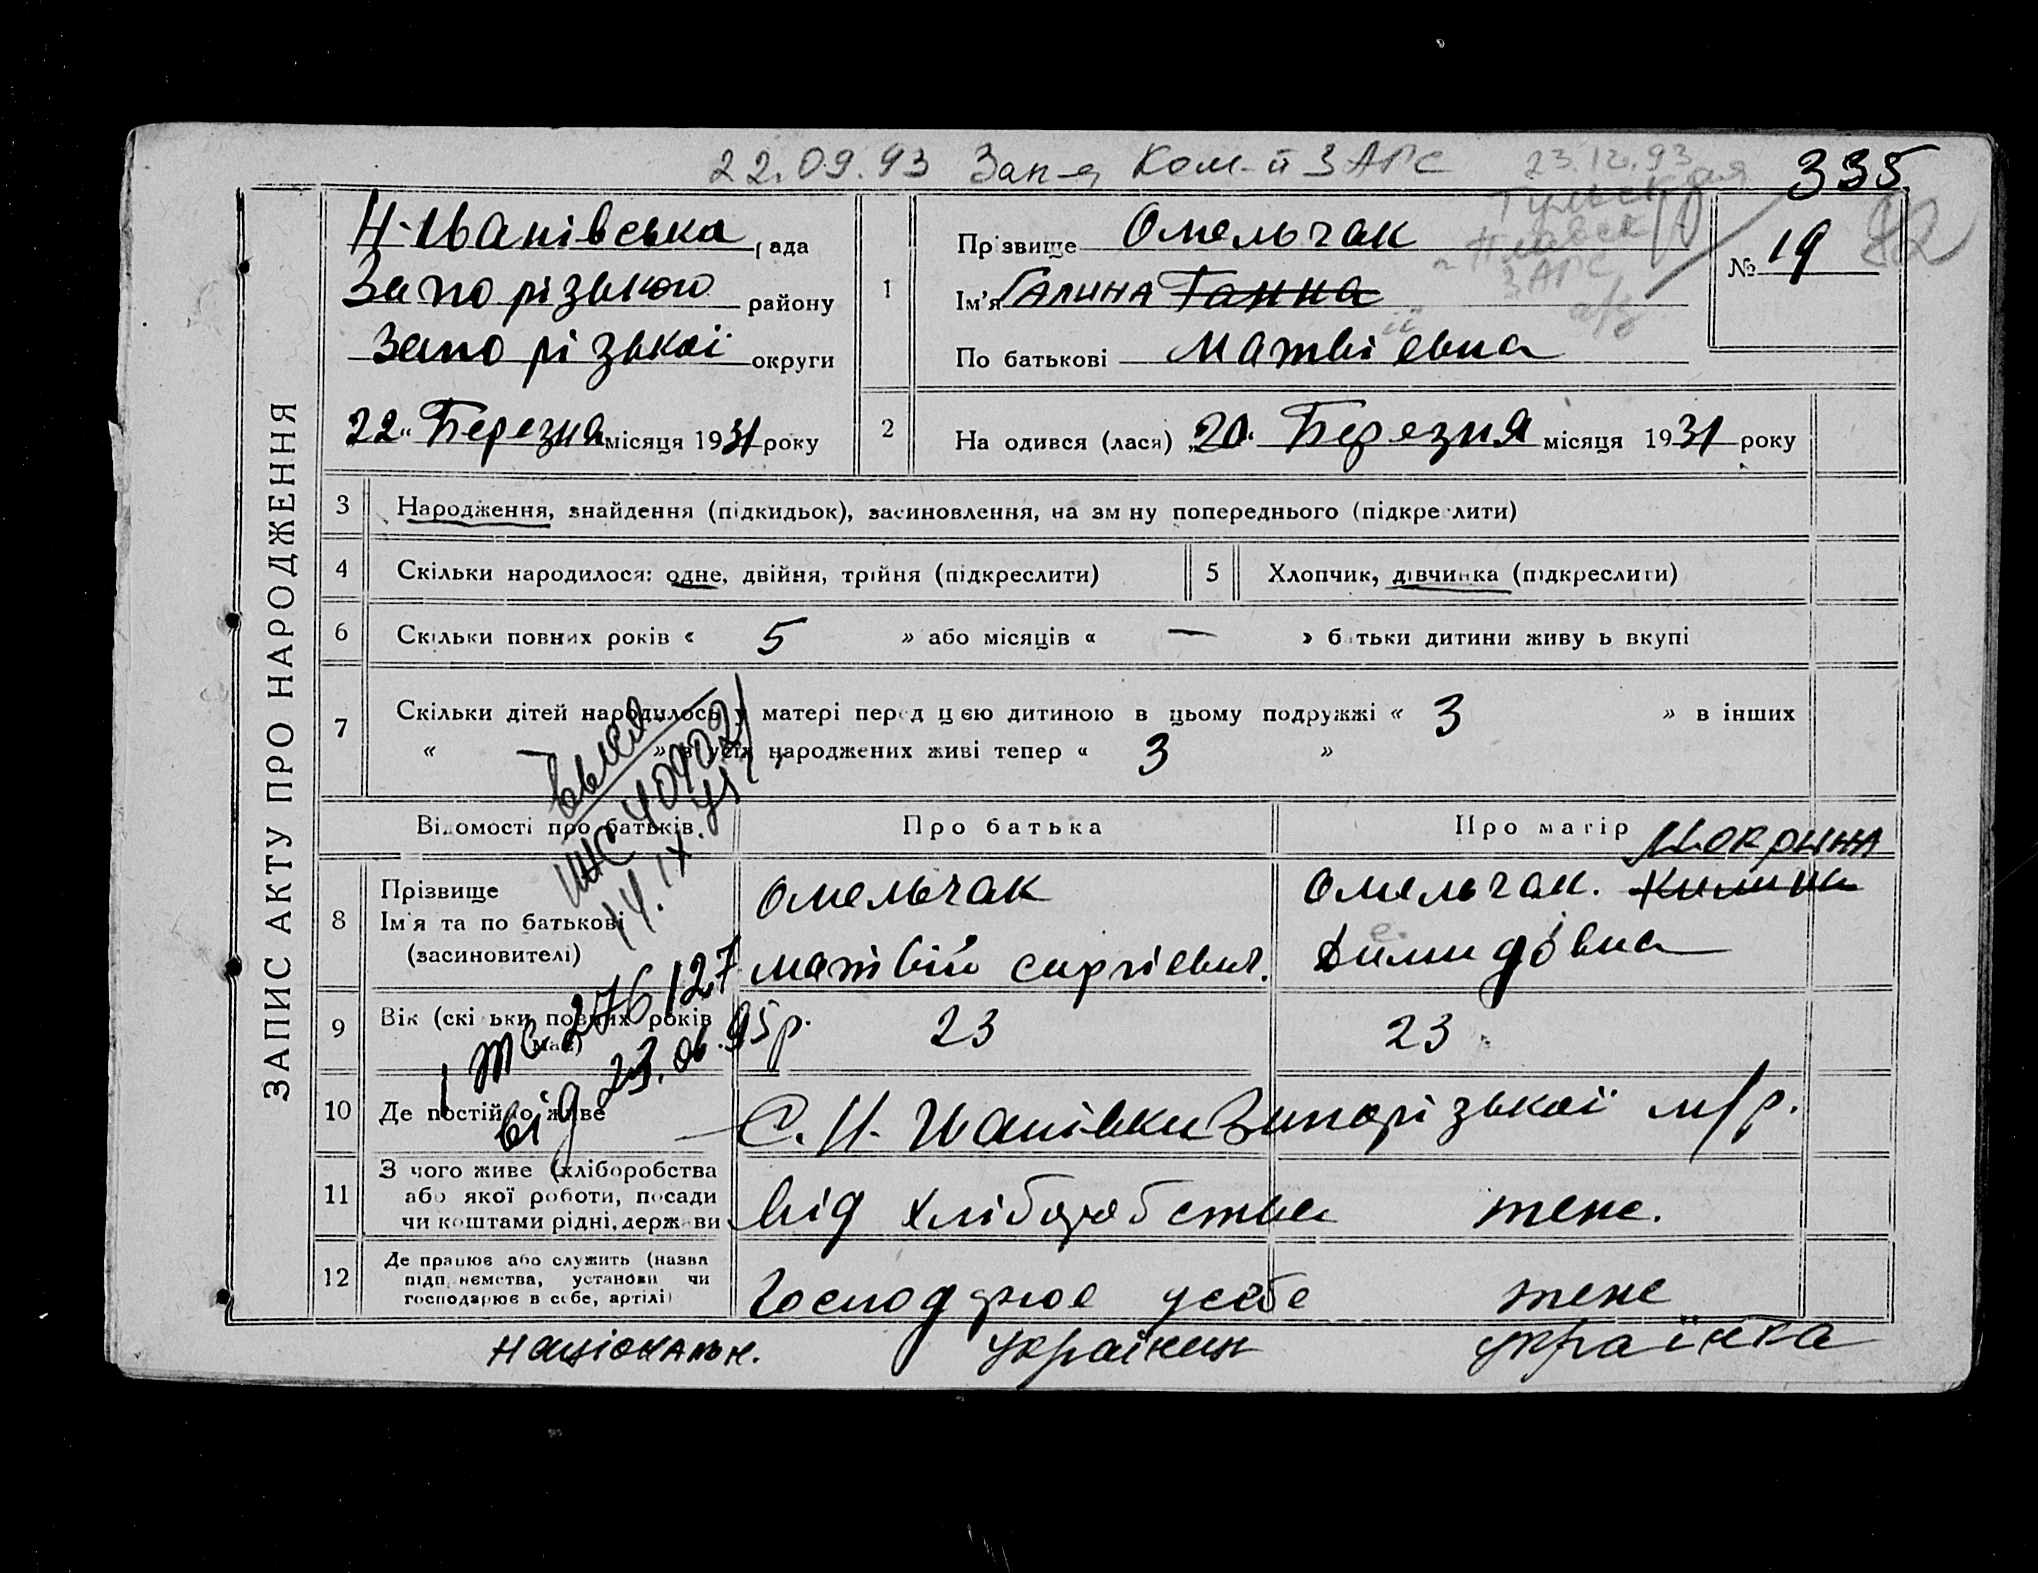 22.09.93 Зап-я Ком-й ЗАГС
23.12.93
335
ЗАПИС АКТУ ПРО НАРОДЖЕННЯ
Н-Іванівська рада
Запорізького району
Запорізької округи
22 Березня місяця 1931 року
1
Прізвище Омельчак
Ім'я Галина Ганна
По батькові Матвіевна
ії
Тульская
ЗАГС
№ 19
82
2
Народився (лася) „20 Березня місяця 1931 року
3 Народження, знайдення (підкидьок), засиновлення, на зміну попереднього (підкреслити)
4 Скільки народилося: одне, двійня, трійня (підкреслити)
5 Хлопчик, дівчинка (підкреслити)
6 Скільки повних років « 5 » або місяців « — » батьки дитини живуть вкупі
7 Скільки дітей народилось у матері перед цією дитиною в цьому подружжі « 3 » в інших
« — » в усіх народжених живі тепер « 3 »
14.IX.
І ЖС 276127
від 23.06.95р.
Відомості про батьків
Про батька
Про матір
8
Прізвище
Ім'я та по батькові
(засиновителі)
Омельчак
Матвій Сиргіевич.
Мокрина
Омельчак.
е
Димидовна
9 Вік (скільки повних років має) 23 23
10 Де постійно живе С. Н. Іванівки Запорізької м/р.
11 З чого живе (хліборобства
або якої роботи, посади
чи коштами рідні, держави
Від хліборобства теже.
12 Де працює або служить (назва
підприємства, установи чи
господарює в себе, артілі)
Господарює у себе теже
Національн. українец українка